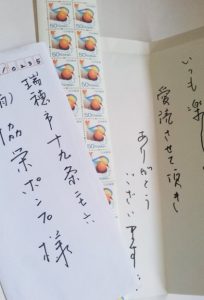 10235
瑞穂市十九条二六
(有) 協栄ポンプ様
50
いつも楽し
愛読させて頂き
ありがとう
ございます。